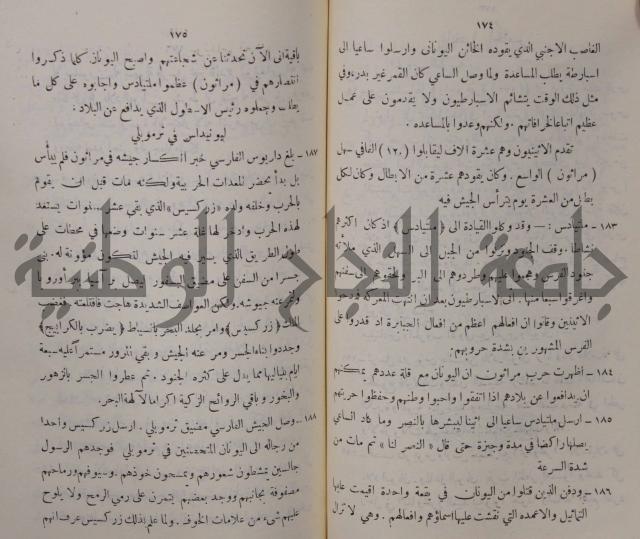 ١٧٤
الغاصب الاجنبي الذي يقوده الخائن اليوناني وارسلوا ساعيا الى
اسبارطة يطلب المساعدة ولما وصل الساعي كان القمر غير بدر وفي
مثل ذلك الوقت يتشائم الاسبارطيون ولا يقدمون على عمل
عظيم اتباعا لخرافاتهم . ولكنهم وعدوا بالمساعده .
تقدم الاثينيون وهم عشرة الاف ليقابلوا (١٢٠) الفا في سهل
( مراثون ) الواسع . وكان يقودهم عشرة من الابطال وكان لكل
بطل من العشرة يوم يترأس الجيش فيه
١٨٣ - ملتيادس : — وقد وكلوا القيادة الى ( ملتيادس ) اذ كان اكثرهم
نشاطا . وقف الجنود ونزلوا من الجبل الى السهل الذي ملأته
جنود الفرس وهجموا عليهم وطردوهم الى البحر ولحقوهم الى سفنهم
واغرقوا سبعا منها . اتى الاسبارطيون بعد ان انتهت المعركة ومدحوا
الاثينيين وقالوا ان افعالهم اعظم من افعال الجبابرة اذ قدروا على
الفرس المشهورين بشدة حروبهم .
١٨٤ - اظهرت حرب مراثون ان اليونان مع قلة عددهم يمكنهم
ان يدافعوا عن بلادهم اذا اتفقوا واحبوا وطنهم وحفظوا حريتهم
١٨٥ - ارسل ملتيادس ساعيا الى اثينا ليبشرها بالنصر وما كاد الساعي
يصلها راكضا في مدة وجيزة حتى قال « النصر لنا » ثم مات من
شدة السرعة
١٨٦ - ودفن الذين قتلوا من اليونان في بقعة واحدة اقيمت عليها
التماثيل والاعمده التي نقشت عليها اسماؤهم وافعالهم . وهي لا تزال
١٧٥
باقية الى الآن تحدثنا عن شجاعتهم واصبح اليونان كلما ذكروا
انتصارهم في ( مراثون ) عظموا ملتيادس واجابوه على كل ما
يطلب وجعلوه رئيس الاسطول الذي يدافع عن البلاد .
ليونيداس في ترموبلي
١٨٧ - بلغ داريوس الفارسي خبر انكسار جيشه في مراثون فلم ييأس
بل بدأ يحضر المعدات الحربية ولكنه مات قبل ان يقوم
بالحرب وخلفه ولده « زركسيس » الذي بقي عشر سنوات يستعد
لهذه الحرب وادخر لها غلة عشر سنوات وضعها في محطات على
طول الطريق الذي يسير فيه الجيش لتكون مؤونة له . بنى
جسرا من السفن على مضيق البسفور ليصل بر آسيا ببر اوروبا
ولكن العواصف الشديدة هاجت فاقلعته . فغضب
الملك ( زركسيس ) وامر بجلد البحر بالسياط ( يضرب بالكرابيج )
وجددوا بناء الجسر ومر عنه الجيش وبقي المرور مستمرا عليه سبعة
ايام بلياليها مما يدل على كثرة الجنود . ثم عطروا الجسر بالزهور
والبخور وباقي الروائح الزكية اكراما لآلهة البحر .
١٨٨ - وصل الجيش الفارسي مضيق ترموبلي . ارسل زركسيس واحدا
من رجاله الى اليونان المتحصنين في ترموبلي فوجدهم الرسول
جالسين يمشطون شعورهم ويمسحون خوذهم . وسيوفهم ورماحهم
مصفوفة بجانبهم ووجد بعضهم يتمرن على رمي الرمح ولا يلوح
عليهم شيء من علامات الخوف . ولما علم بذلك زركسيس عرف انهم
جامعة النجاح الوطنية